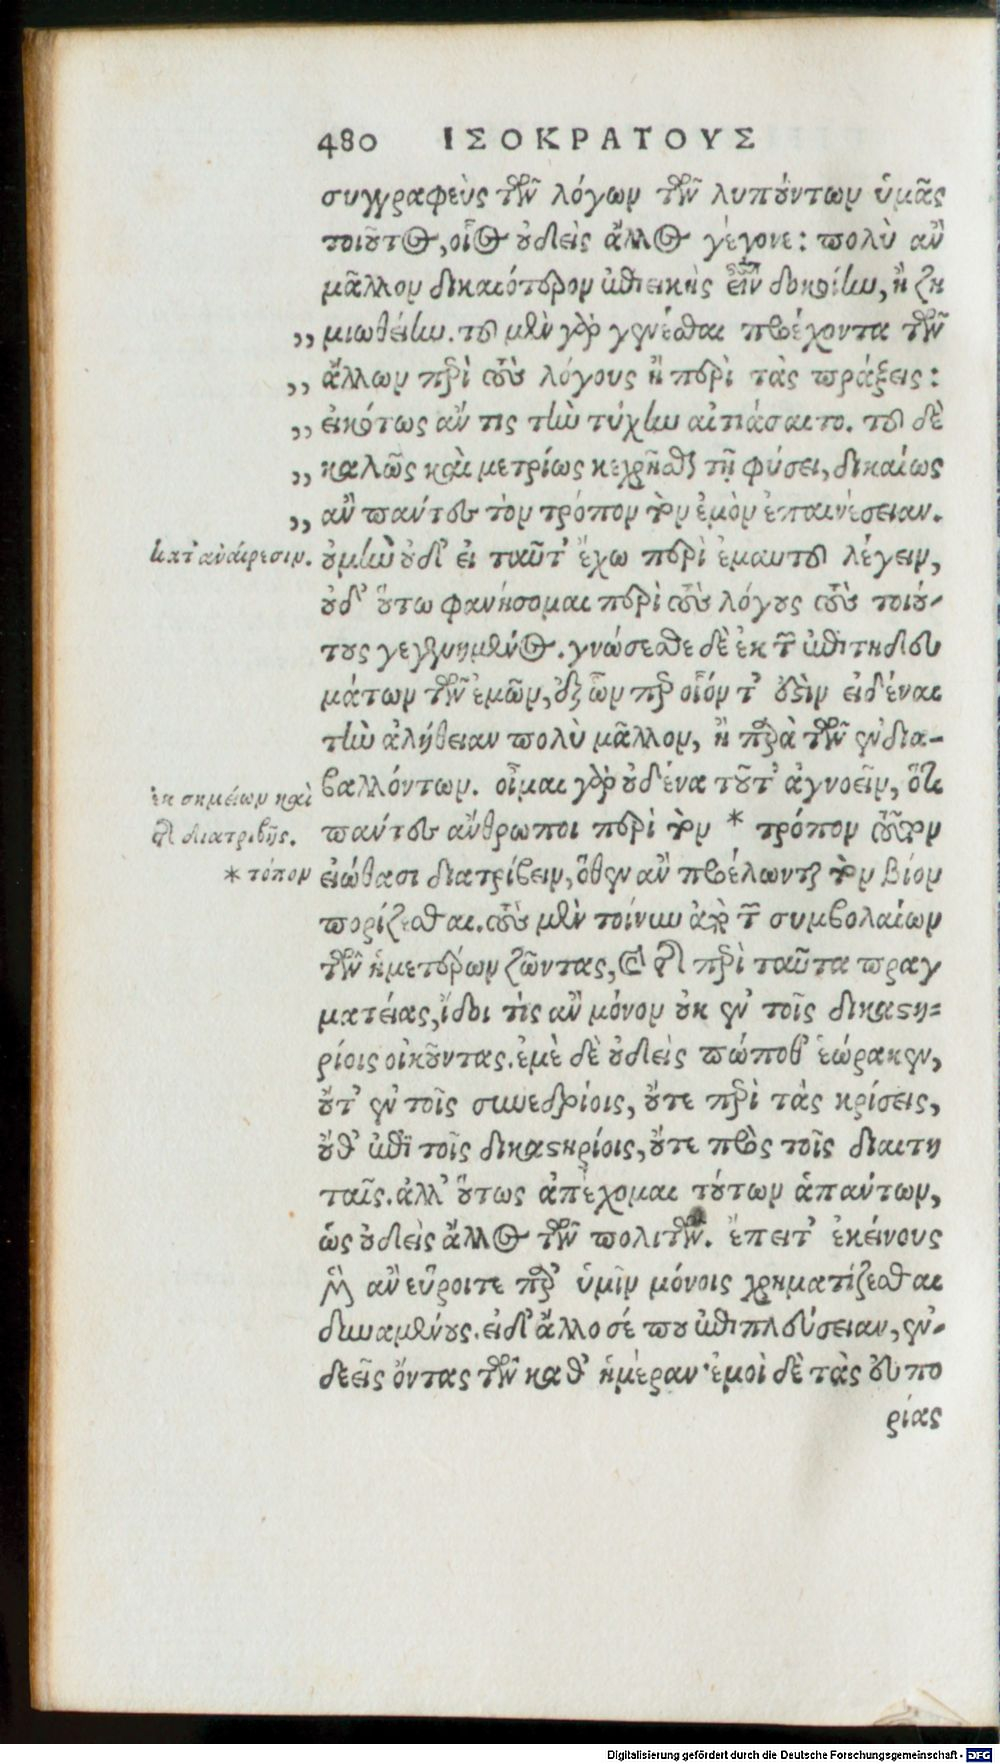 480 ΙΣΟΚΡΑΤΟΥΣ
συγγραφεὺς τῶν λόγων τῶν λυπούντων ὑμᾶς
τοιοῦτος, οἷος οὐδεὶς ἄλλος γέγονε: πολὺ ἂν
μᾶλλον δικαιότερον ἐπιεικὴς εἶναι δοκοίην, ἢ ζη
,, μιωθείην. τοῦ μὲν γὰρ γενέσθαι προέχοντα τῶν
,, ἄλλων περὶ τοὺς λόγους ἢ περὶ τὰς πράξεις:
,, εἰκότως ἄν τις τὴν τύχην αἰτιάσαιτο. τοῦ δὲ
,, καλῶς καὶ μετρίως κεχρῆσθαι τῇ φύσει, δικαίως
,, ἂν πάντες τὸν τρόπον τὸν ἐμὸν ἐπαινέσειαν.
κατ' ἀναίρεσιν. οὐ μὴν οὐδ' εἰ ταῦτ' ἔχω περὶ ἐμαυτοῦ λέγειν,
οὐδ' οὕτω φανήσομαι περὶ τοὺς λόγους τοὺς τοιού-
τους γεγενημένος. γνώσεσθε δὲ ἐκ τῶν ἐπιτηδευ
μάτων τῶν ἐμῶν, ἐξ ὧν περ οἷόν τ' ἐστὶν εἰδέναι
τὴν ἀλήθειαν πολὺ μᾶλλον, ἢ παρὰ τῶν ἐνδια-
βαλλόντων. οἶμαι γὰρ οὐδένα τοῦτ' ἀγνοεῖν, ὅτι
ἐκ σημείων καὶ
τῆς διατριβῆς.
πάντες ἄνθρωποι περὶ τὸν * τρόπον τοῦτον
* τόπον
εἰώθασι διατρίβειν, ὅθεν ἂν προέλωνται τὸν βίον
πορίζεσθαι. τοὺς μὲν τοίνυν ἀπὸ τῶν συμβολαίων
τῶν ἡμετέρων ζῶντας, καὶ τῆς περὶ ταῦτα πραγ
ματείας, ἴδοι τὶς ἂν μόνον οὐκ ἐν τοῖς δικαστη-
ρίοις οἰκοῦντας. ἐμὲ δὲ οὐδεὶς πώποθ' ἑώρακεν,
οὔτ' ἐν τοῖς συνεδρίοις, οὔτε περὶ τὰς κρίσεις,
οὔθ' ἐπὶ τοῖς δικαστηρίοις, οὔτε πρὸς τοῖς διαιτη
ταῖς. ἀλλ' οὕτως ἀπέχομαι τούτων ἁπάντων,
ὡς οὐδεὶς ἄλλος τῶν πολιτῶν. ἔπειτ' ἐκείνους
μὲν ἂν εὕροιτε παρ' ὑμῖν μόνοις χρηματίζεσθαι
δυναμένους. εἰ δ' ἄλλοσέ που ἐπιπλεύσειαν, ἐν-
δεεῖς ὄντας τῶν καθ' ἡμέραν· ἐμοὶ δὲ τὰς εὐπο
ρίας
Digitalisierung gefördert durch die Deutsche Forschungsgemeinschaft - DFG